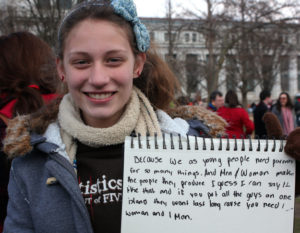 tistics
T OF FIV
Because we as young people need parents
for so many things. And Men/Woman make
the people they produce I guess I can say 1/2
the that and if you put all the guys on one
island they wont last long cause you need 1
woman and 1 man.